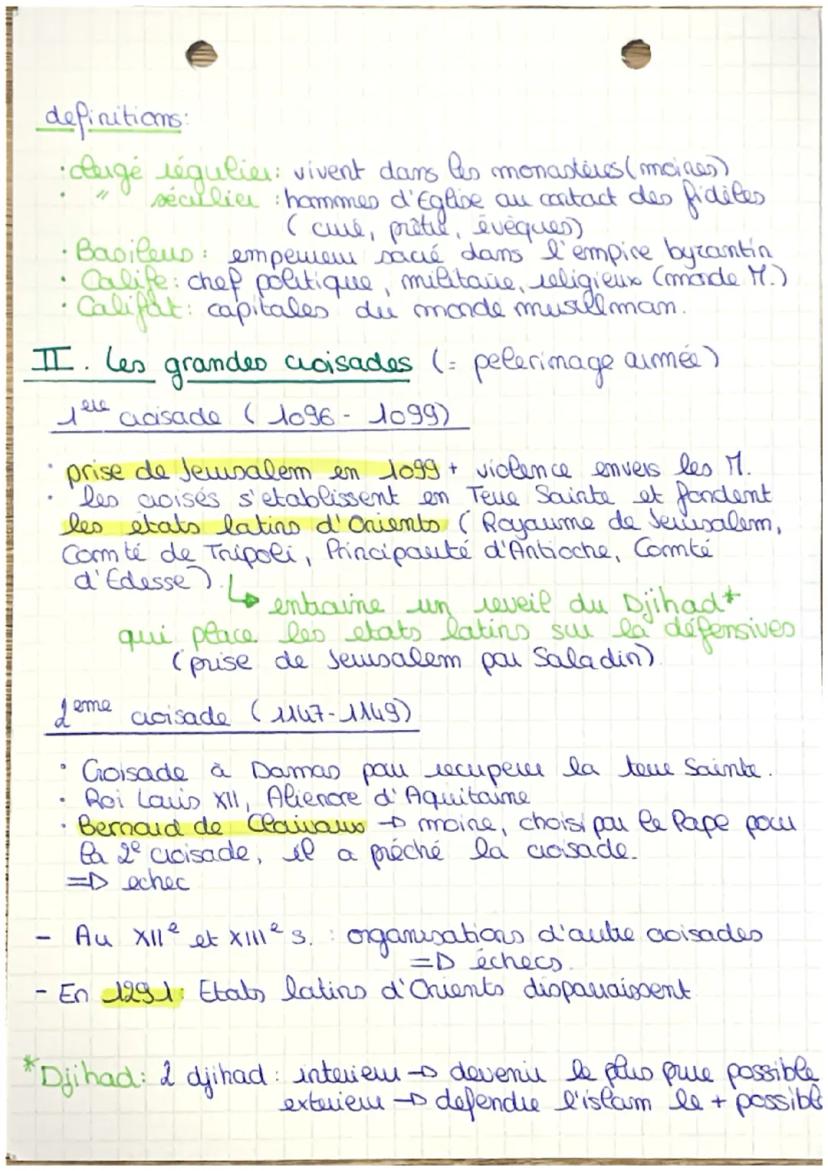 definitions:
· clergé régulier: vivent dans les monastères (moines)
· " séculier : hommes d'Eglise au contact des fidèles
( curé, prêtre, évèques)
· Basileus : empereur sacré dans l'empire byzantin
· Calife : chef politique, militaire, religieux (monde M.)
· Califat : capitales du monde musulman.
II. Les grandes croisades (= pelerimage armée)
1ère croisade ( 1096 - 1099)
· prise de Jerusalem en 1099 + violence envers les M.
· les croisés s'etablissent en Terre Sainte et fondent
les états latins d'Orients ( Royaume de Jerusalem,
Comté de Tripoli, Principauté d'Antioche, Comté
d'Edesse)
↳ entraine un reveil du Djihad*
qui place les etats latins sur la défensives
( prise de Jerusalem par Saladin)
2eme croisade ( 1147-1149)
· Croisade à Damas pour recuperer la terre Sainte.
· Roi Louis XII, Alienore d'Aquitaine
· Bernard de Clairvaux → moine, choisi par le Pape pour
la 2e croisade, il a préché la croisade.
=> echec
- Au XIIe et XIIIe s. : organisations d'autre croisades
=> échecs.
- En 1291: Etats latins d'Orients disparaissent
*Djihad: 2 djihad : interieur → devenir le plus pure possible
exterieur → defendre l'islam le + possible